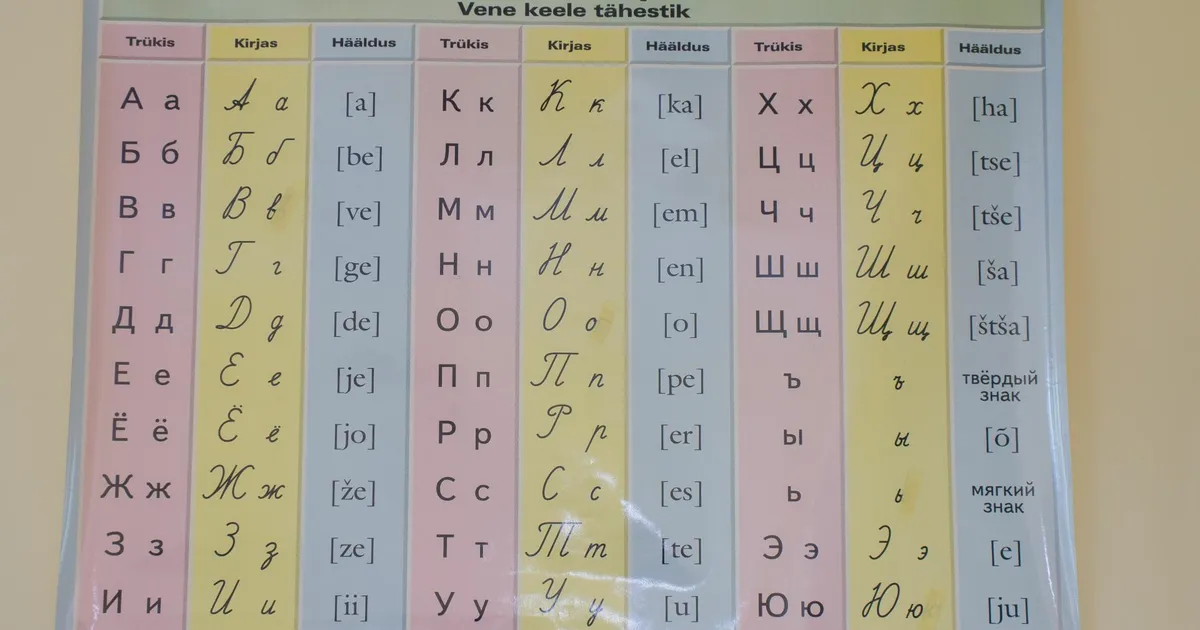 Vene keele tähestik
Trükis Kirjas Hääldus Trükis Kirjas Hääldus Trükis Kirjas Hääldus
А а А а [a] К к К к [ka] Х х Х х [ha]
Б б Б б [be] Л л Л л [el] Ц ц Ц ц [tse]
В в В в [ve] М м М м [em] Ч ч Ч ч [tše]
Г г Г г [ge] Н н Н н [en] Ш ш Ш ш [ša]
Д д Д д [de] О о О о [o] Щ щ Щ щ [štša]
Е е Е е [je] П п П п [pe] ъ ъ твёрдый знак
Ё ё Ё ё [jo] Р р Р р [er] ы ы [õ]
Ж ж Ж ж [že] С с С с [es] ь ь мягкий знак
З з З з [ze] Т т Т т [te] Э э Э э [e]
И и И и [ii] У у У у [u] Ю ю Ю ю [ju]